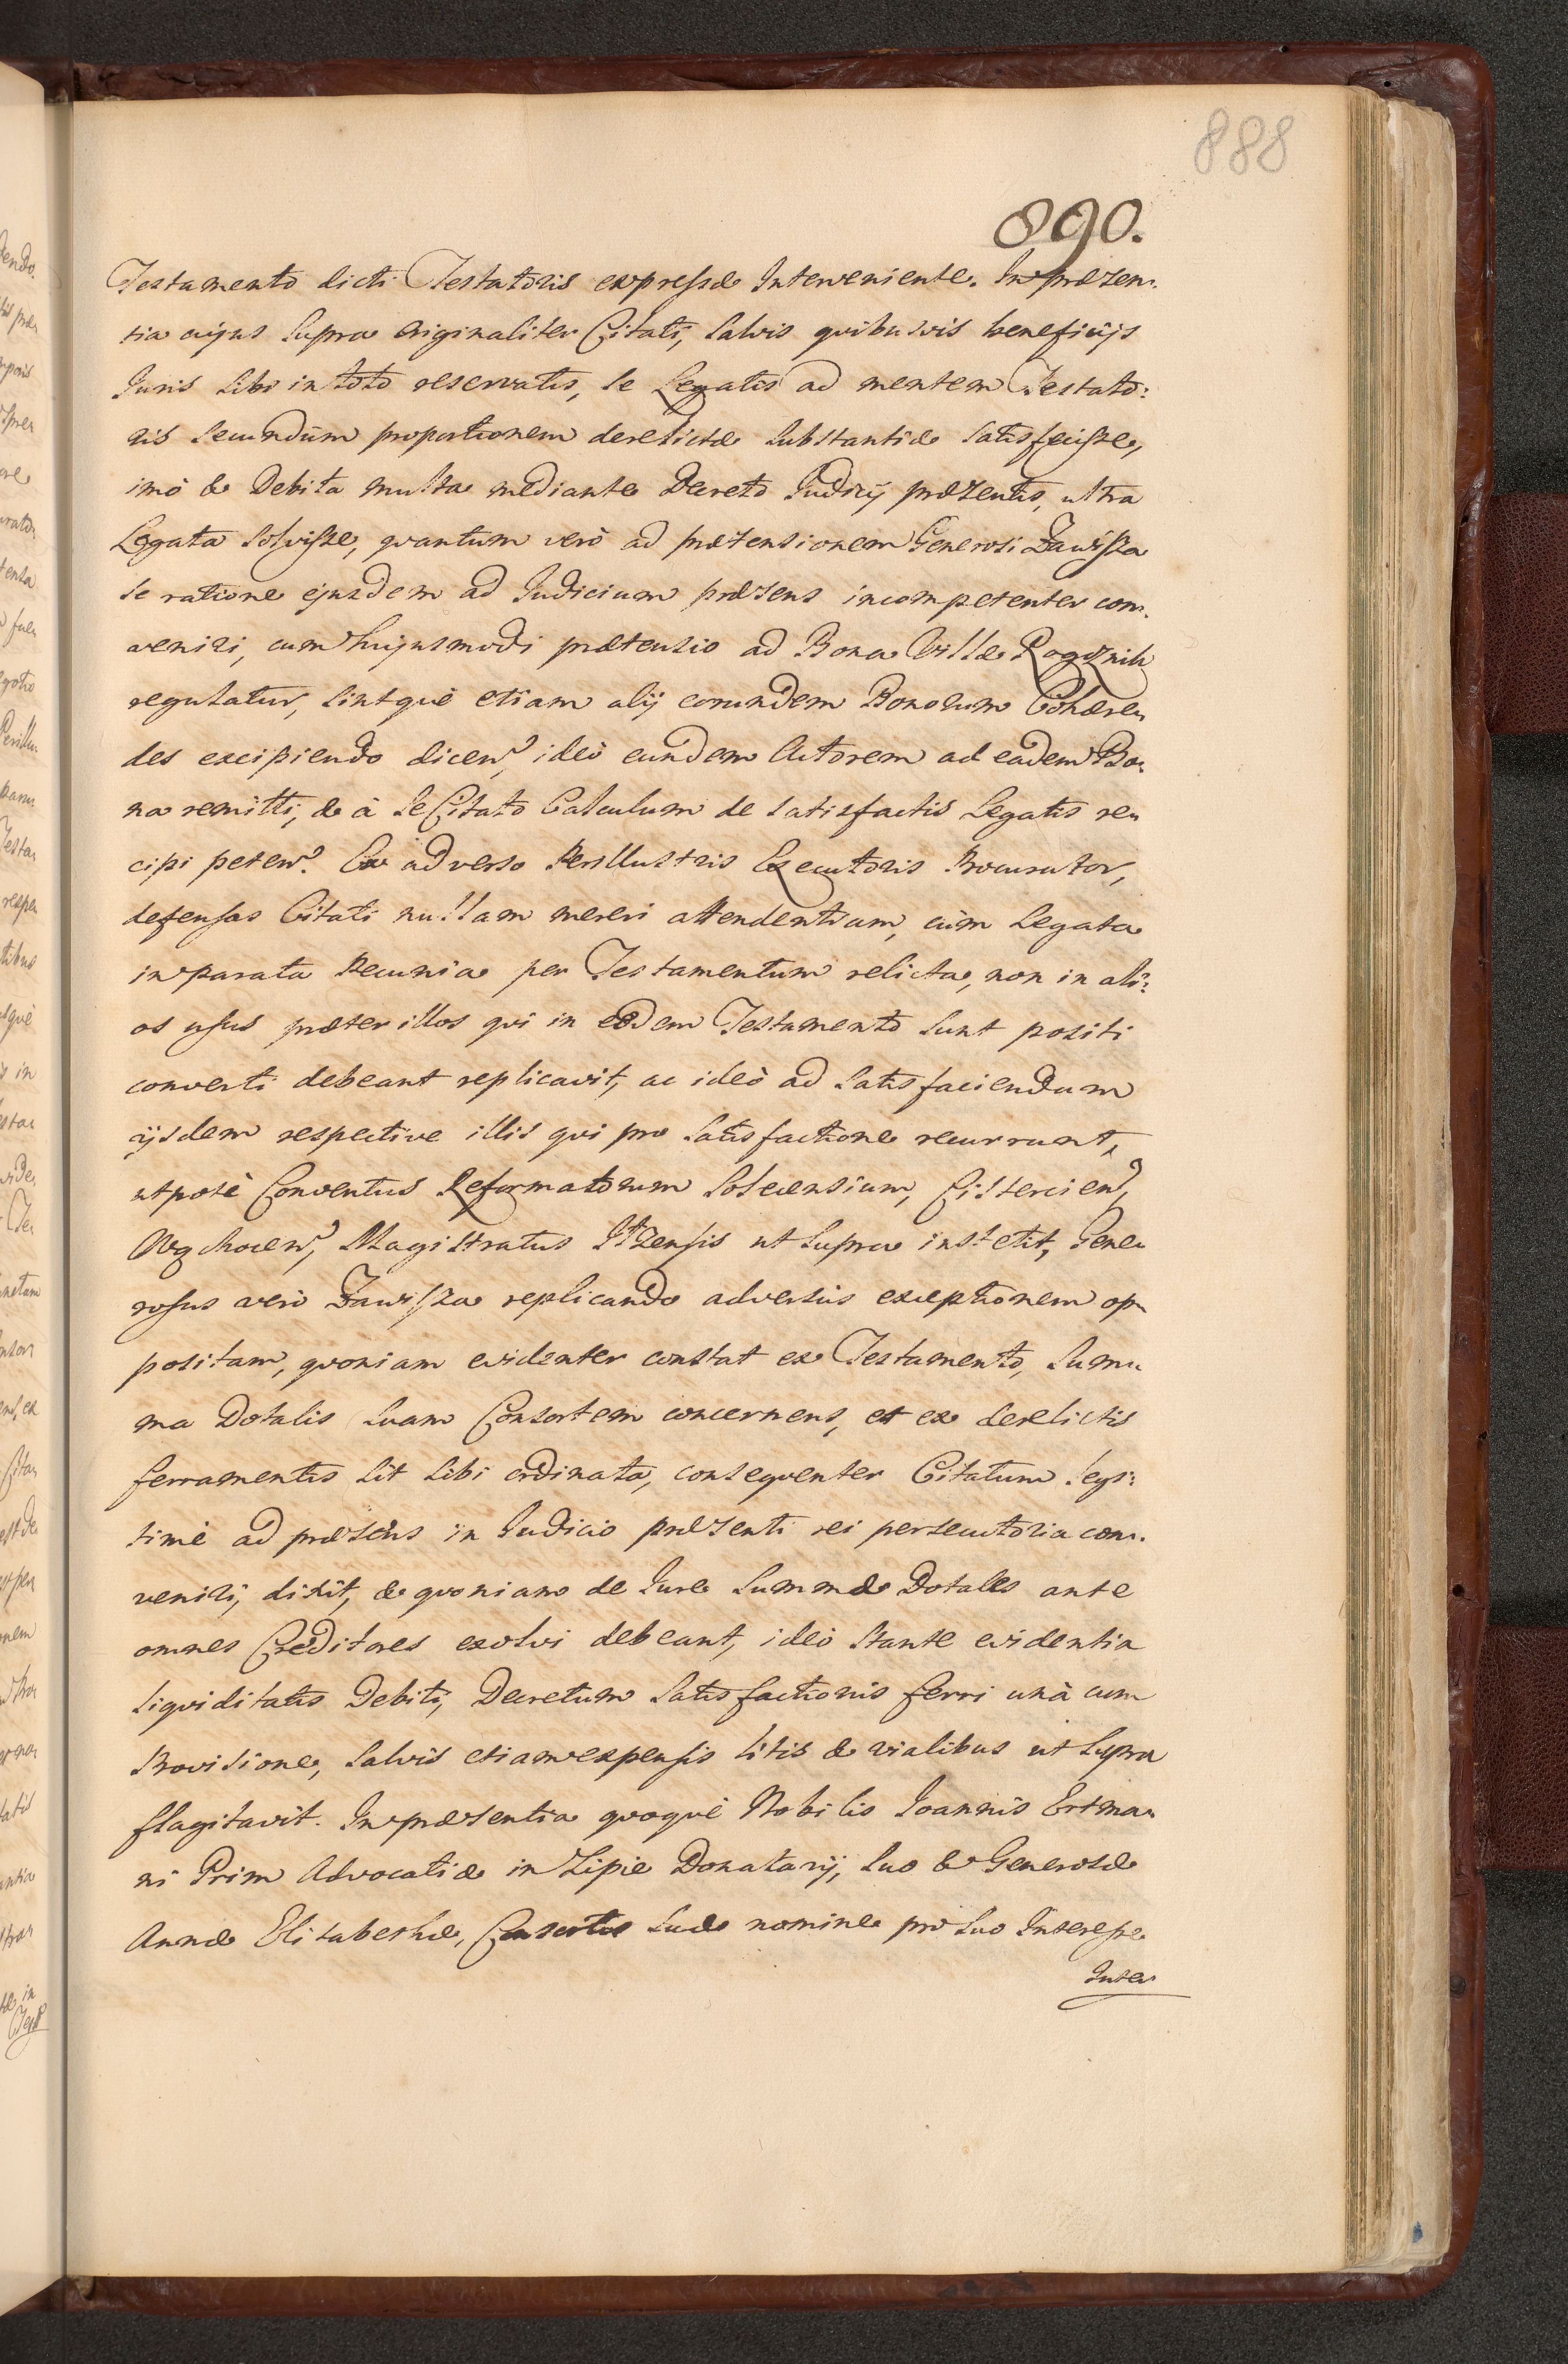 888
890.
Testamento dicti Testatoris expressæ Interveniente. In præsen:
tia cujus supra originaliter Citati, salvis quibusvis beneficijs
Juris sibi in toto reservatis, se Legatis ad mentem Testato:
ris secundùm proportionem derelictæ substantiæ satisfecisse,
imò & Debita multa mediante Decreto Judicij præsentis, ultra
Legata solvisse, quantum verò ad prætensionem Generosi Zawisza
se ratione ejusdem ad Judicium præsens incompetenter con:
veniri, cum hujusmodi prætensio ad Bona Villæ Rogoznik
regulatur, sintquè etiam alij eorundem Bonorum Cohære:
des excipiendo dicen, ideò eundem Actorem ad eadem Bo:
na remitti, & à se Citato Calculum de satisfactis Legatis re:
cipi peten. Ex adverso Perillustris Executoris Procurator,
defensas Citati nullam mereri attendentiam, cùm Legata
in parata Pecunia per Testamentum relicta, non in ali:
os usus præter illos qui in eodem Testamento sunt positi
converti debeant replicavit, ac ideò ad satisfaciendum
ijsdem respective illis qui pro satisfactione recurrunt,
utpotè Conventus Reformatorum Solecensium, Cistercien,
Wąchocen, Magistratus Ilzensis ut supra institit, Gene:
rosus verò Zawisza replicando adversùs exceptionem op:
positam, quoniam evidenter constat ex Testamento, Sum:
ma Dotalis suam Consortem concernens, et ex derelictis
ferramentis sit sibi ordinata, consequenter Citatum legi:
timè ad præsens in Judicio præsenti rei persecutoria con:
veniri, dixit, & quoniam de Jure Summæ Dotales ante
omnes Creditores exolvi debeant, ideò stante evidentia
liquiditatis Debiti, Decretum satisfactionis ferri unà cum
Provisione, salvis etiam expensis litis & vialibus ut supra
flagitavit. In præsentia quoquè Nobilis Joannis Ertma:
ni Prim Advocatiæ in Lipie Donatarij, suo & Generosæ
Annæ Elisabethæ, Consortis suæ nomine pro suo Interesse
Inter